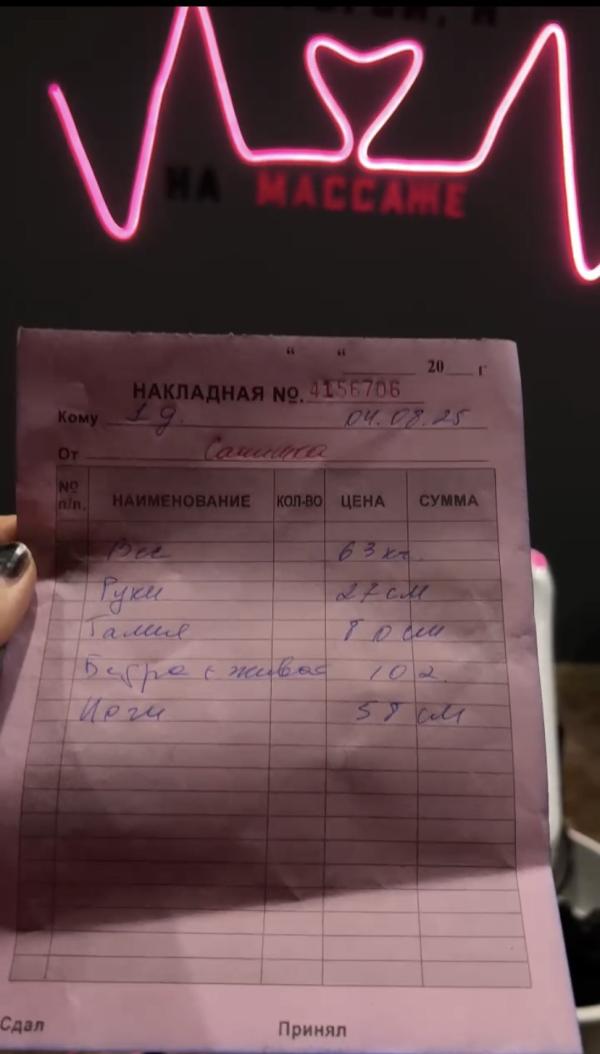 НА МАССАЖЕ
" " 20 г
НАКЛАДНАЯ №. 4156706
Кому 1 д. 04.08.25
От
№ п/п. НАИМЕНОВАНИЕ КОЛ-ВО ЦЕНА СУММА
Вес 63 кг.
Руки 27 см
Талия 80 см
Бедра с живо 102.
Ноги 58 см
Сдал Принял